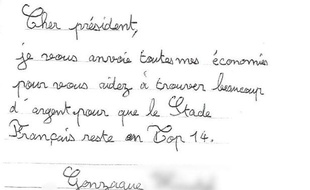 Cher président,
je vous anvoie toutes mes économies
pour vous aidez à trouver beaucoup
d'argent pour que le Stade
Français reste en Top 14.
Gonzague